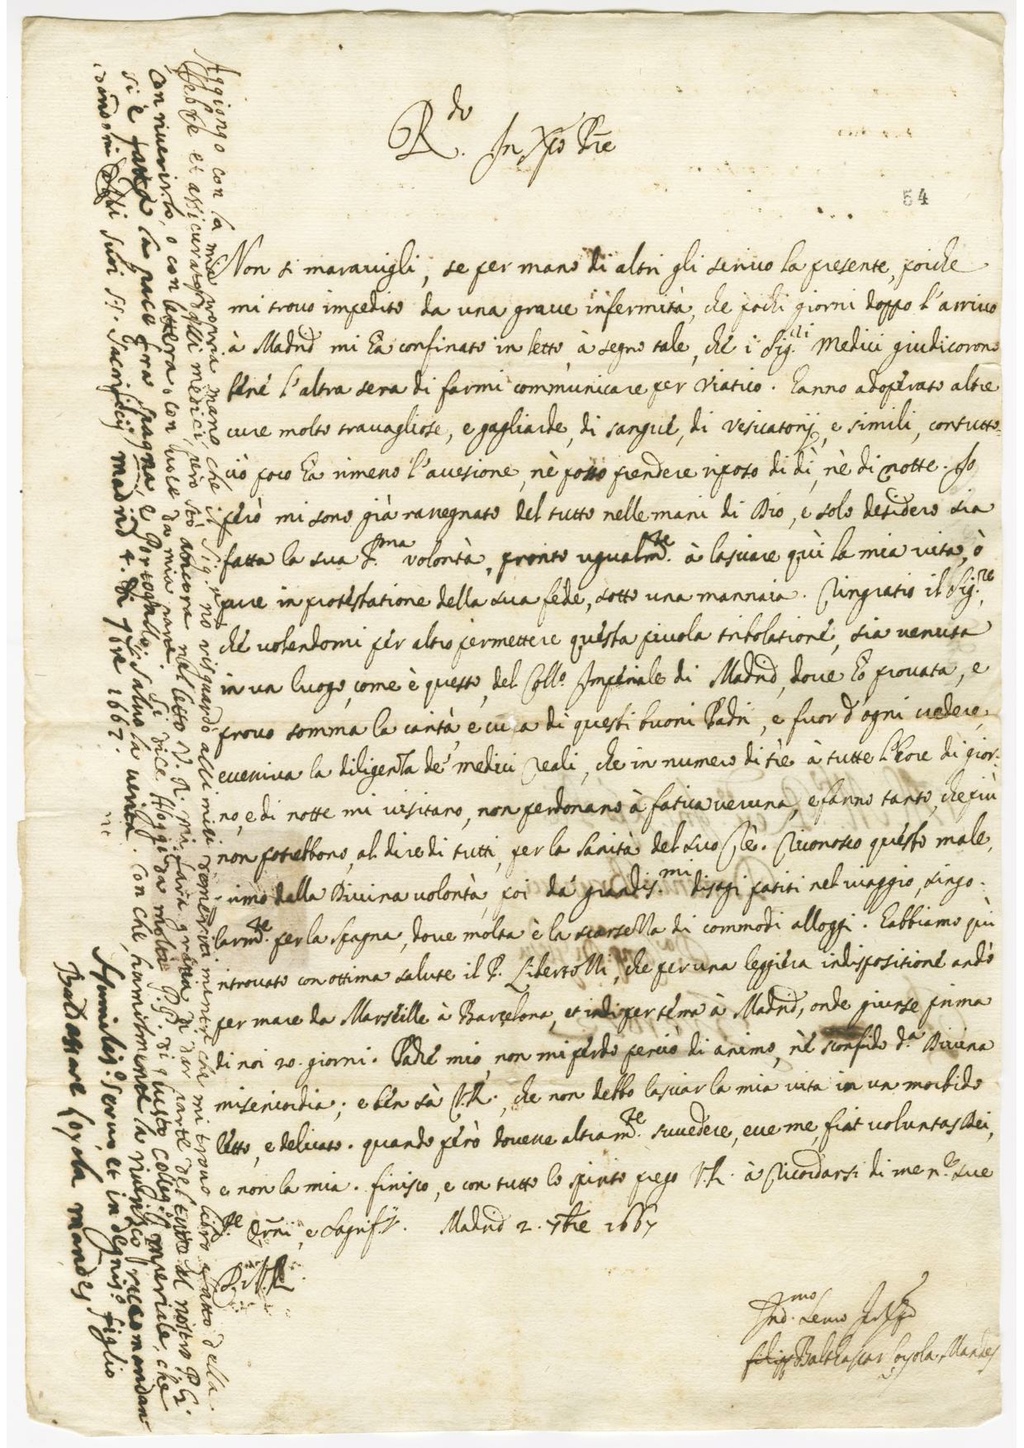 R.do In Xpo Pre
54
Non si maravigli, se per mano di altri gli scrivo la presente, poiche
mi trovo impedito da una grave infermità, che pochi giorni doppo l'arrivo
à Madrid mi hà confinato in letto, à segno tale, che i Sig.ri Medici giudicorono
bene l'altra sera di farmi communicare per viatico. hanno adoperato altre
cure molto travagliose, e gagliarde, di sangue, di vesicatorij, e simili, con tutto
ciò poco hà rimesso l'accessione, nè posso prendere riposo di dì, nè di notte. Io
però mi sono già rassegnato del tutto nelle mani di Dio, e solo desidero sia
fatta la sua S.ma volontà, pronto ugualm.te à lasciare quì la mia vita, ò
pure in protestatione della sua fede, sotto una mannaia. Ringratio il Sig.re,
che volendomi per altro permettere questa picola tribolatione, sia venuta
in un luogo, come è questo, del Coll.o Imperiale di Madrid, dove hò provata, e
provo somma la carità e cura di questi buoni Padri, e fuor d'ogni credere,
eccessiva la diligenza de' medici Reali, che in numero di tre à tutte l'hore di gior-
no, e di notte mi visitano, non perdonano à fatica veruna, e fanno tanto, che più
non potrebbono, al dire di tutti, per la sanità del suo Rè. Riconosco questo male,
primo dalla Divina volontà, poi da' grandis.mi disagi patiti nel viaggio, singo-
larm.te per la Spagna, dove molta è la scarsezza di commodi alloggi. habbiamo quì
ritrovato con ottima salute il P. Libertelli, che per una leggiera indispositione andò
per mare da Marsiglie à Barcelona, et indi per terra à Madrid, onde giunse prima
di noi 20. giorni. Padre mio, non mi perdo perciò di animo, nè sconfido d.a Divina
misericordia; e ben sà V.R., che non debbo lasciar la mia vita in un morbido
letto, e delicato. quando però dovesse altram.te succedere, ecce me, fiat voluntas Dei,
e non la mia. finisco, e con tutto lo spirito prego V.R. à Ricordarsi di me n.e sue
S.te Orni, e Sagrif.ij. Madrid 2. 7bre 1667
D. V. R.
Ind.mo Servo
Balthasar Loyola Mandes
Aggiongo con la mia propria mano che il Sig.re no risguardò alli miei demeriti mentre che mi trovo libero affatto della
febre et assicurato dalli medici, però stò ancora nel letto V. R. mi farà gratia di dar parte del tutto al nostro P. G.
con riverirlo, o con lettera o con voce da mia parte. Si dice hoggi da molti P.P. di questo collegio imperiale, che
si è fatta la pace fra Spagna e Portogallo, salvo la verità. Con che, humilmente la riverisco raccomandan
domi alli suoi SS. Sacrificij Madrid 4. di 7bre 1667.
Humilis.o Servo et indegnis.o figlio
Baldassare Loyola mandes